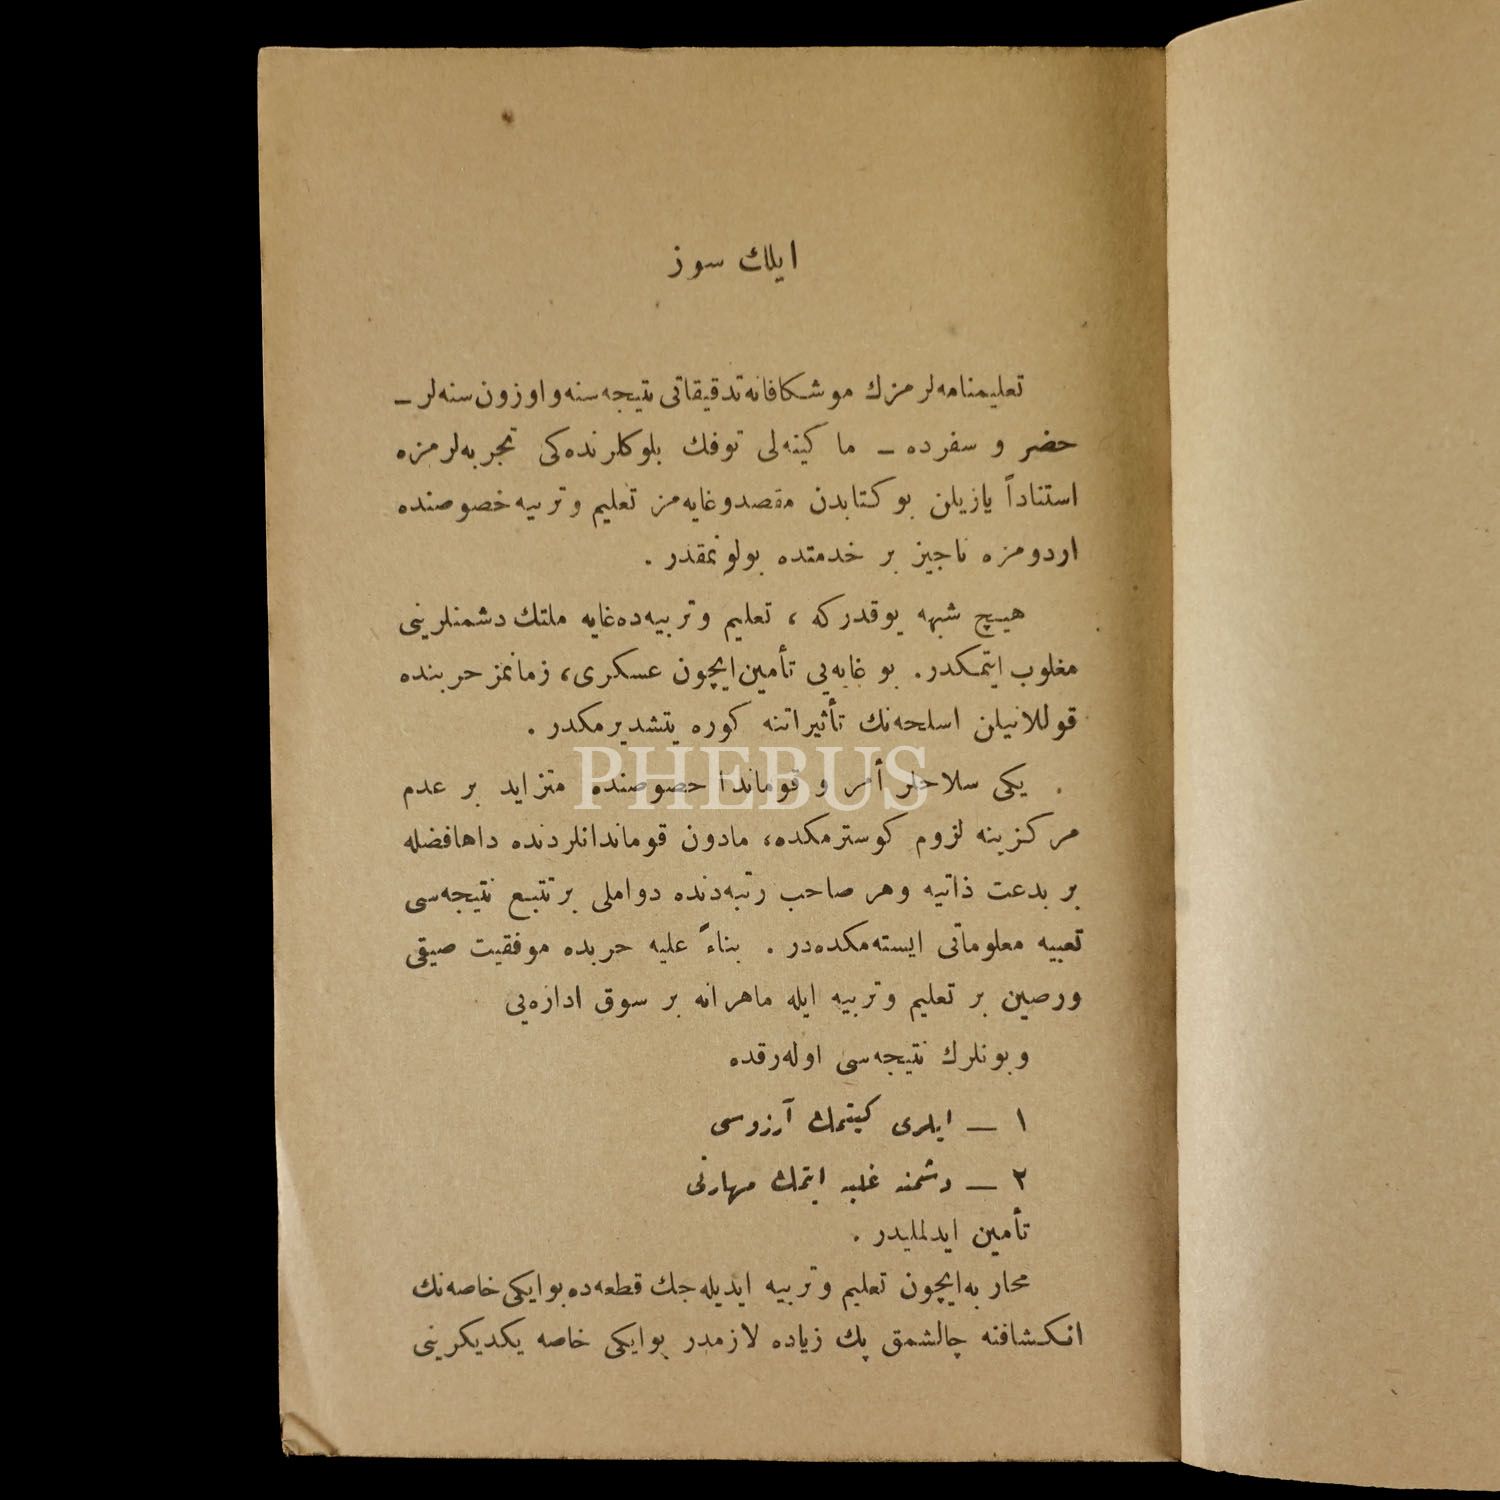 ايلك سوز
تعليمنامه‌لرمزك موشكافانه تدقيقاتى نتيجه‌سنه و اوزون سنه‌لر ـ
حضر و سفرده ـ ماكينه‌لى توفك بلوكلرنده‌كى تجربه‌لرمزه
استناداً يازيلن بو كتابدن مقصد و غايه‌مز تعليم و تربيه خصوصنده
اردومزه ناچيز بر خدمتده بولونمقدر .
هيچ شبهه يوقدركه ، تعليم و تربيه‌ده غايه ملتك دشمنلرينى
مغلوب ايتمكدر . بو غايه‌يى تأمين ايچون عسكرى ، زمانمز حربنده
قوللانيلن اسلحه‌نك تأثيراتنه كوره يتشديرمكدر .
يكى سلاحلر أمر و قوماندا خصوصنده متزايد بر عدم
مركزيته لزوم كوسترمكده ، مادون قوماندانلردنده داها فضله
بر بدعت ذاتيه و هر صاحب رتبه‌دنده دواملى بر تتبع نتيجه‌سى
تعبيه معلوماتى ايسته‌مكده‌در . بناءً عليه حربده موفقيت صيقى
و رصين بر تعليم و تربيه ايله ماهرانه بر سوق اداره‌يى
و بونلرك نتيجه‌سى اوله‌رقده
١ ــ ايلرى كيتمك آرزوسى
٢ ــ دشمنه غلبه ايتمك مهارتى
تأمين ايدلمليدر .
محاربه ايچون تعليم و تربيه ايديله‌جك قطعه‌ده بو ايكى خاصه‌نك
انكشافنه چالشمق پك زياده لازمدر بو ايكى خاصه يكديكرينى
PHEBUS